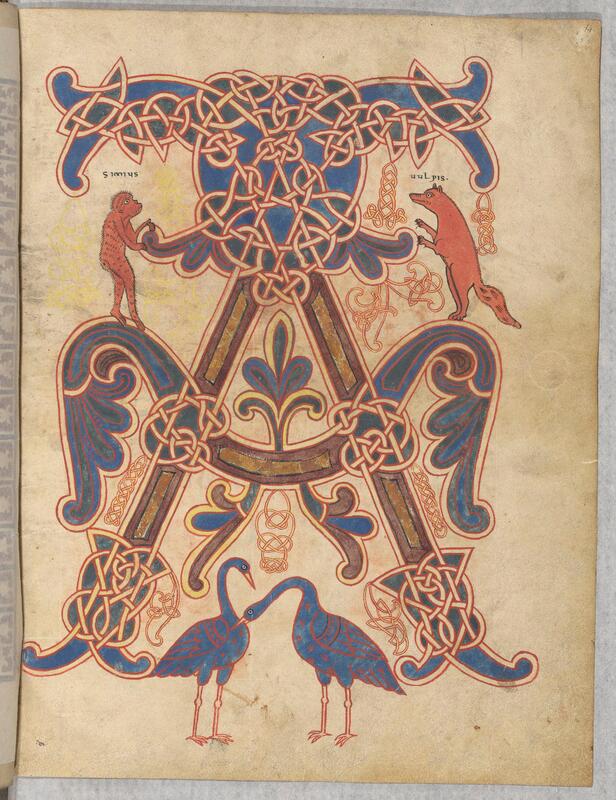 Simius
uulpis.
A